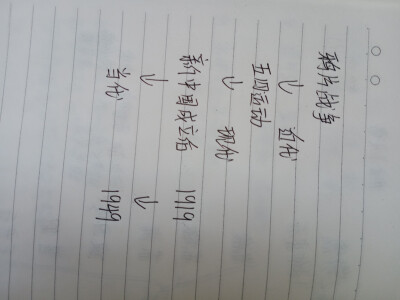 鸦片战争
↓ 近代
五四运动
↓ 现代
新中国成立后 1919
↓ ↓
当代 1949